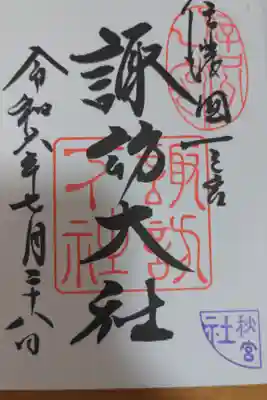 信濃國一之宮
諏訪大社
諏訪
下社
令和六年七月二十八日
秋宮
社